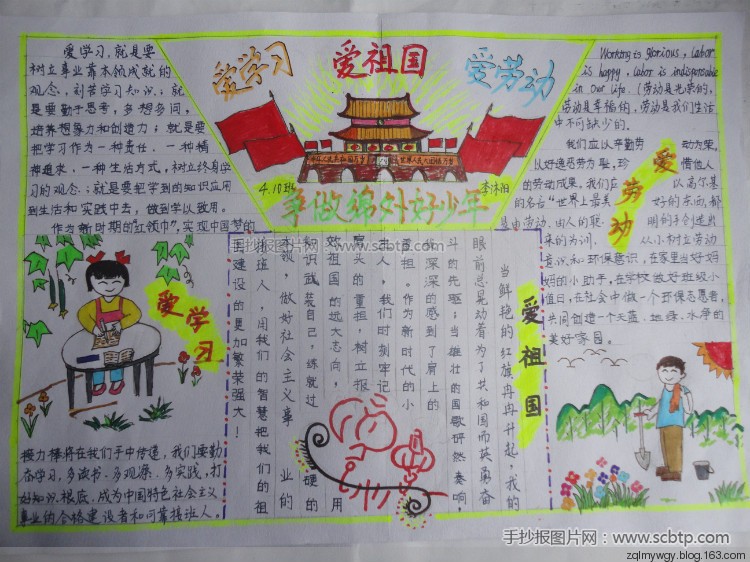 爱学习 爱祖国 爱劳动
中华人民共和国万岁 世界人民大团结万岁
4.10班 李沐阳
争做锦外好少年
爱学习,就是要
树立事业靠本领成就的
观念,刻苦学习知识;就
是要勤于思考,多想多问,
培养想象力和创造力;就是要
把学习作为一种责任、一种精
神追求、一种生活方式,树立终身学
习的观念;就是要把学到的知识应用
到生活和实践中去,做到学以致用。
作为新时期的红领巾,实现中国梦的
爱学习
接力棒将在我们手中传递,我们要勤
奋学习,多读书、多观察、多实践,打
好知识根底,成为中国特色社会主义
事业的合格建设者和可靠接班人。
爱祖国
当鲜艳的红旗冉冉升起,我的
眼前总晃动着为了共和国而英勇奋
斗的先驱;当雄壮的国歌砰然奏响,
我深深的感到了肩上的
重担。作为新时代的小
主人,我们时刻牢记
肩头的重担,树立报
效祖国的远大志向,用
知识武装自己,练就过硬的
本领,做好社会主义事业的
接班人,用我们的智慧把我们的祖
国建设的更加繁荣强大!
Working is glorious, Labor
is happy, labor is indispensable
in Our life.(劳动是光荣的,
劳动是幸福的,劳动是我们生活
中不可缺少的。
爱劳动
我们应以辛勤劳动为荣,
以好逸恶劳为耻,珍惜他人
的劳动成果,我们应以高尔基
的名言“世界上最美好的东西,都
是由劳动、由人的聪明的手创造出
来的为训,从小树立劳动
意识和环保意识,在家里当好妈
妈的小助手,在学校做好班级小
值日,在社会中做一个环保志愿者,
共同创造一个天蓝、地绿、水净的
美好家园。
手抄报图片网:www.scbtp.com
zqlmywgy.blog.163.com